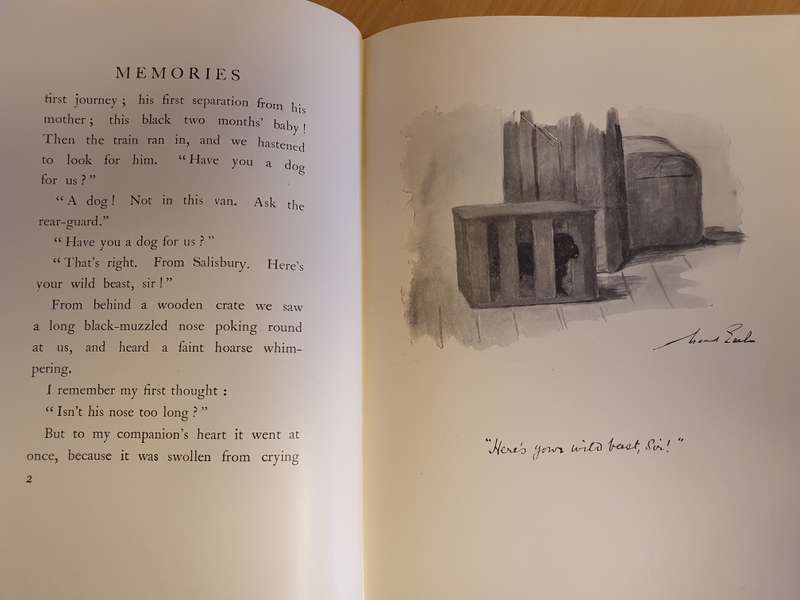 MEMORIES
first journey ; his first separation from his
mother ; this black two months' baby !
Then the train ran in, and we hastened
to look for him. “Have you a dog
for us ?”
“A dog ! Not in this van. Ask the
rear-guard.”
“Have you a dog for us ?”
“That's right. From Salisbury. Here's
your wild beast, sir !”
From behind a wooden crate we saw
a long black-muzzled nose poking round
at us, and heard a faint hoarse whim-
pering.
I remember my first thought :
“Isn't his nose too long ?”
But to my companion's heart it went at
once, because it was swollen from crying
2
“Here's your wild beast, Sir!”